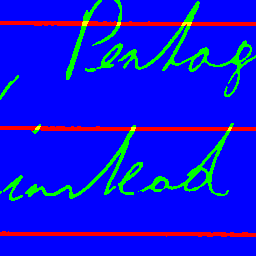 Pentag
instead